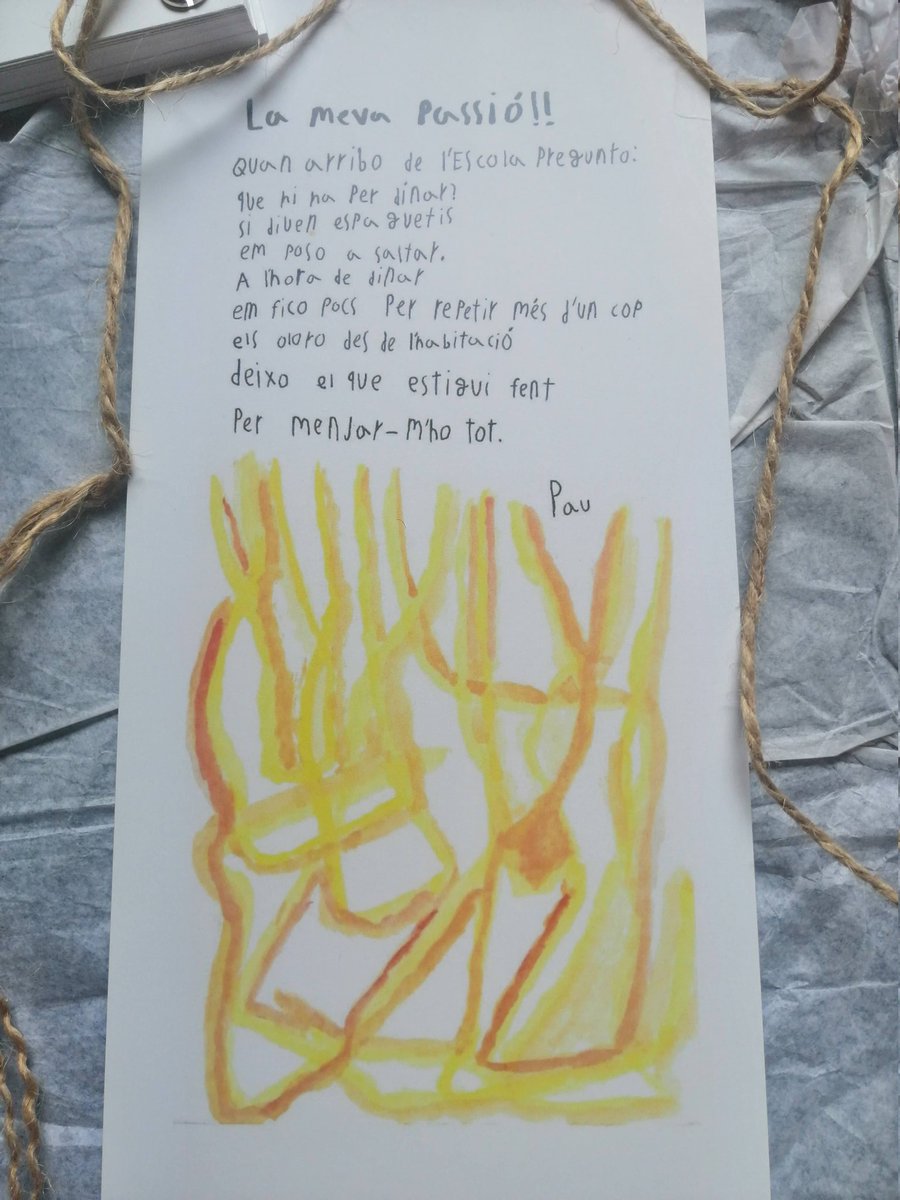 La meva passió!!
Quan arribo de l'Escola Pregunto:
que hi ha Per dinar?
si diuen espaguetis
em poso a saltar.
A l'hora de dinar
em fico pocs Per repetir més d'un cop
els oloro des de l'habitació
deixo el que estigui fent
Per menjar-m'ho tot.
Pau